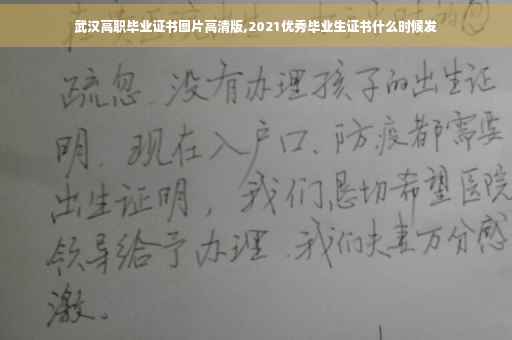 武汉高职毕业证书图片高清版,2021优秀毕业生证书什么时候发
疏忽、没有办理孩子的出生证
明、现在入户口、防疫都需要
出生证明，我们恳切希望医院
领导给予办理、我们夫妻万分感
激。